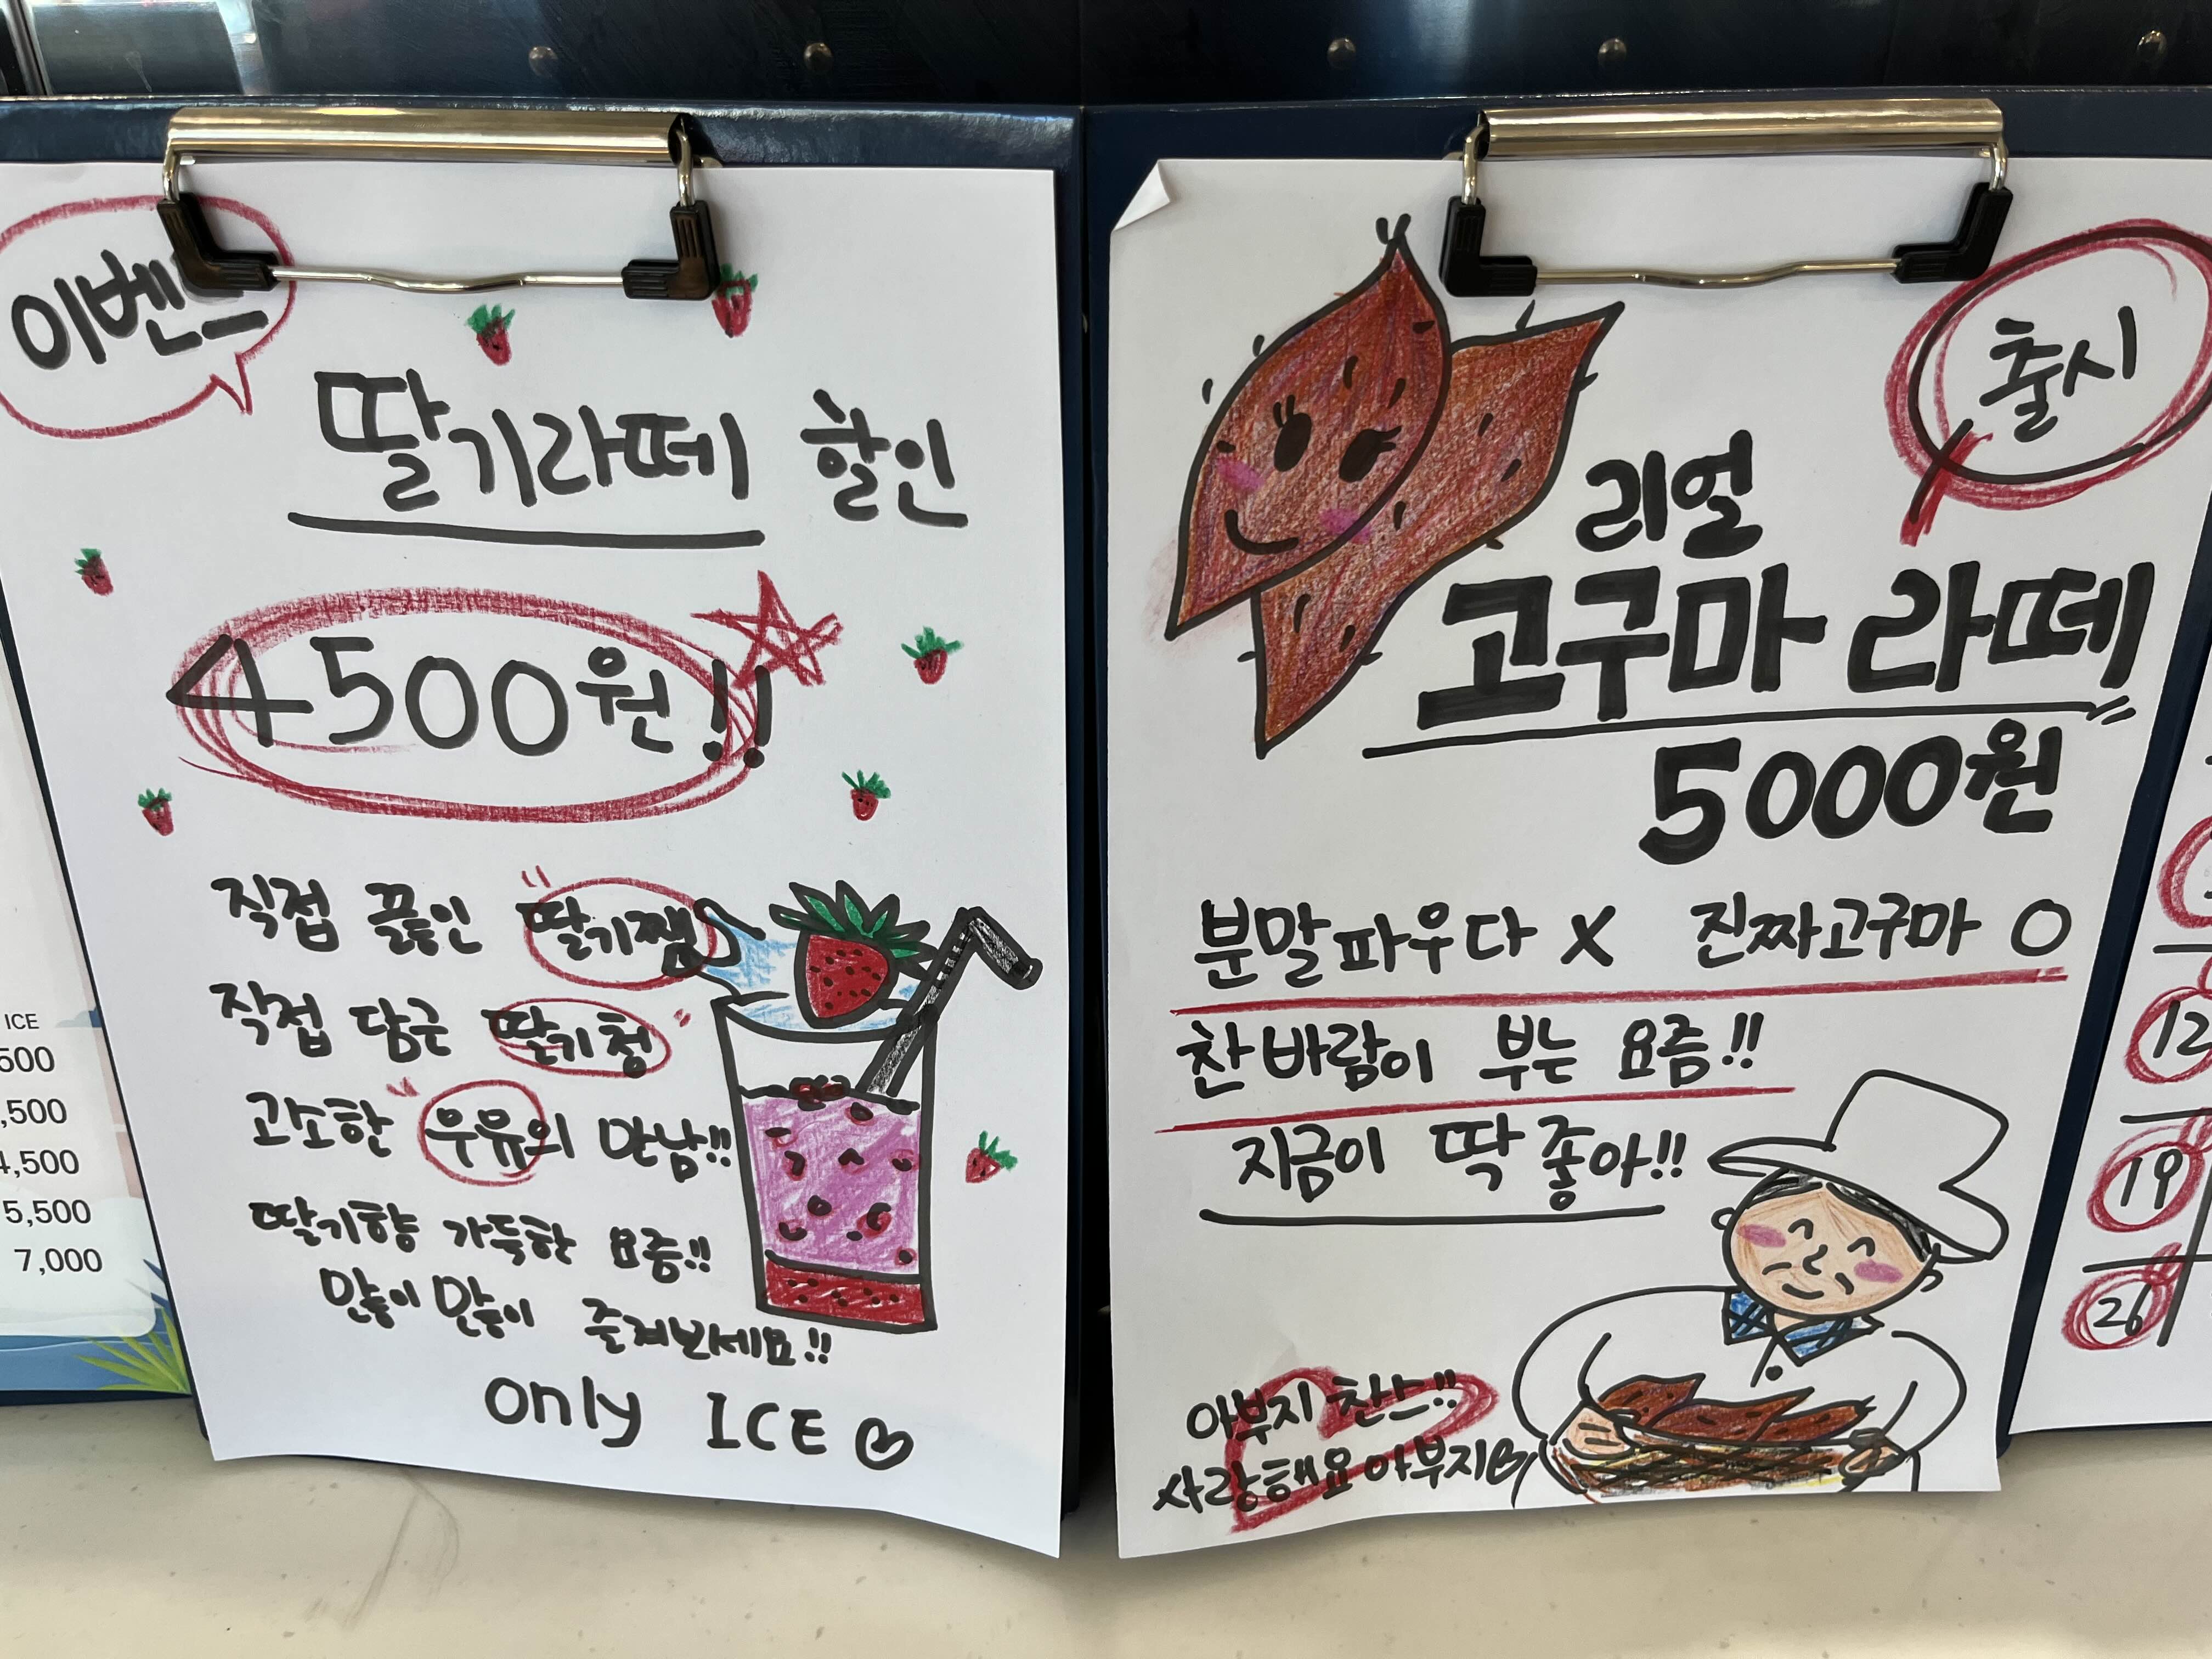 이벤트
딸기라떼 할인
4500원!!
직접 끓인 "딸기쨈
직접 담근 딸기청"
고소한 "우유의 만남!!
딸기향 가득한 요즘!!
많이 많이 즐겨보세요!!
only ICE
출시
리얼
고구마 라떼
5000원
분말파우다 X 진짜고구마 O
찬바람이 부는 요즘!!
지금이 딱 좋아!!
아부지 찬스!!
사랑해요 아부지
ICE
500
,500
4,500
5,500
7,000
12
19
26